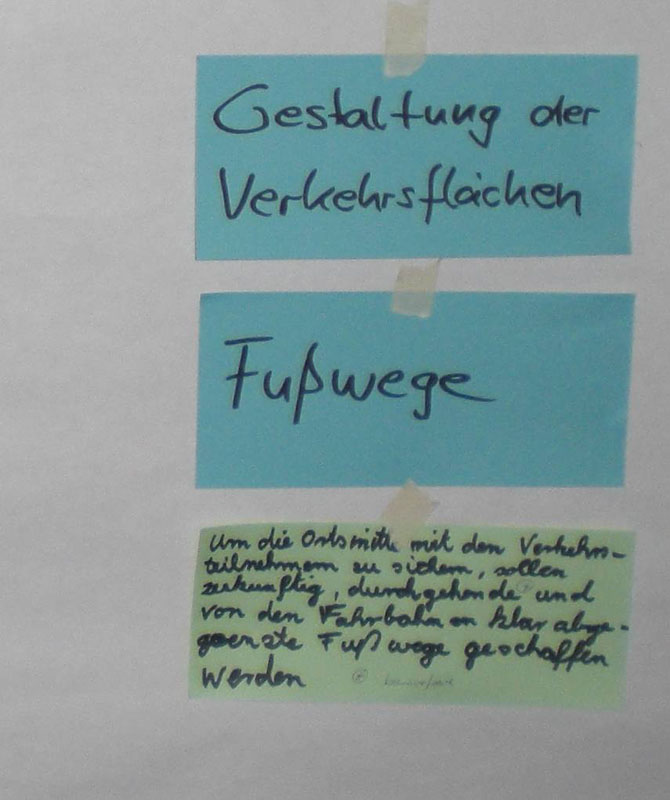 Gestaltung der
Verkehrsflächen
Fußwege
Um die Ortsmitte mit den Verkehrs-
teilnehmern zu sichern, sollen
zukünftig, durchgehende und
von den Fahrbahnen klar abge-
grenzte Fußwege geschaffen
werden